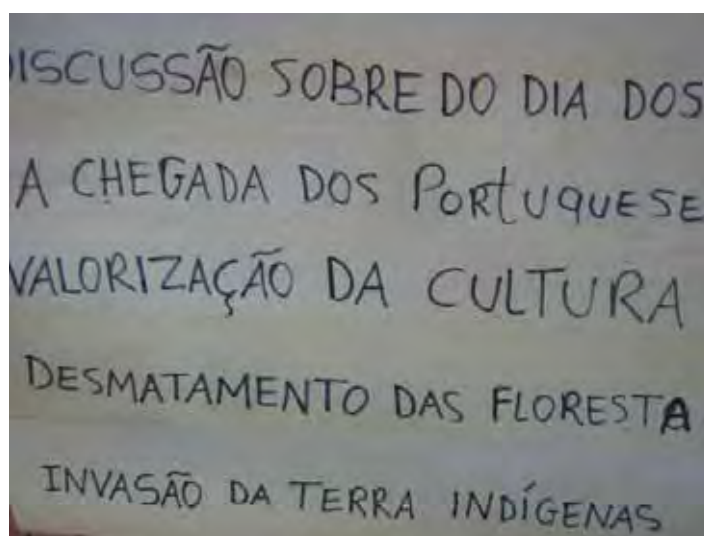 DISCUSSÃO SOBRE DO DIA DOS
A CHEGADA DOS PORTUQUESE
VALORIZAÇÃO DA CULTURA
DESMATAMENTO DAS FLORESTA
INVASÃO DA TERRA INDÍGENAS